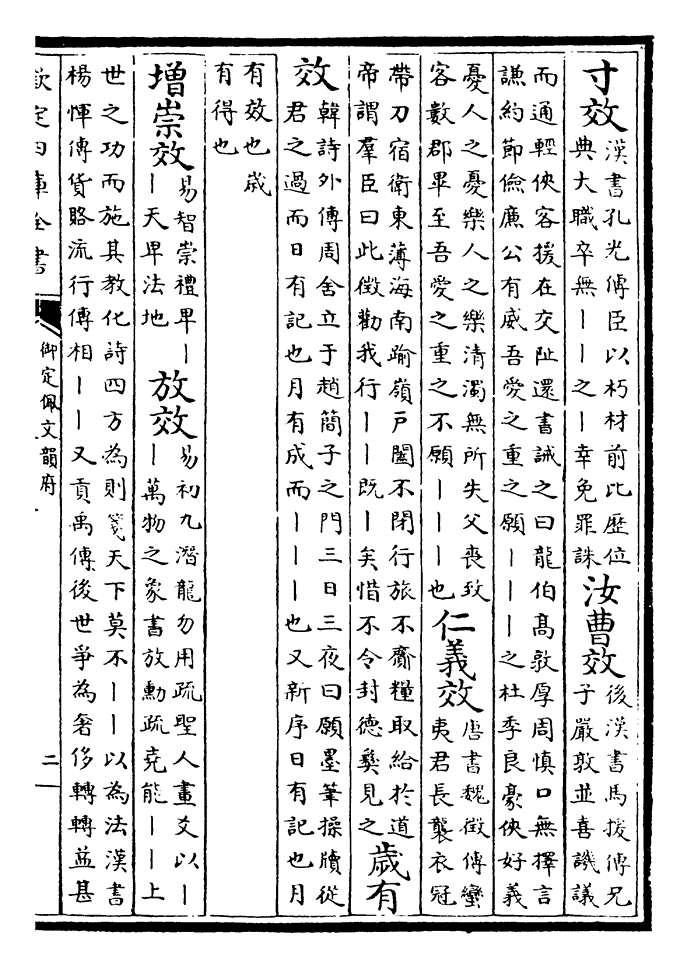 寸效
漢書孔光傳臣以朽材前比歷位
典大職卒無丨丨之丨幸免罪誅
汝曹效
後漢書馬援傳兄
子嚴敦並喜譏議
而通輕俠客援在交阯還書誡之曰龍伯髙敦厚周慎口無擇言
謙約節儉廉公有威吾愛之重之願丨丨丨之杜季良豪俠好義
憂人之憂樂人之樂清濁無所失父喪致
客數郡畢至吾愛之重之不願丨丨丨也
仁義效
唐書魏徵傳蠻
夷君長襲衣冠
帶刀宿衛東薄海南踰嶺戸闔不閉行旅不齎糧取給於道
帝謂羣臣曰此徵勸我行丨丨既丨矣惜不令封德彞見之
歲有
效
韓詩外傳周舍立于趙簡子之門三日三夜曰願墨筆操牘從
君之過而日有記也月有成而丨丨丨也又新序日有記也月
有效也歲
有得也
増崇效
易智崇禮卑丨
丨天卑法地
放效
易初九潛龍勿用疏聖人畫爻以丨
丨萬物之象書放勳疏堯能丨丨上
世之功而施其教化詩四方為則箋天下莫不丨丨以為法漢書
楊惲傳貨賂流行傳相丨丨又貢禹傳後世爭為奢侈轉轉益甚
欽定四庫全書
御定佩文韻府
二